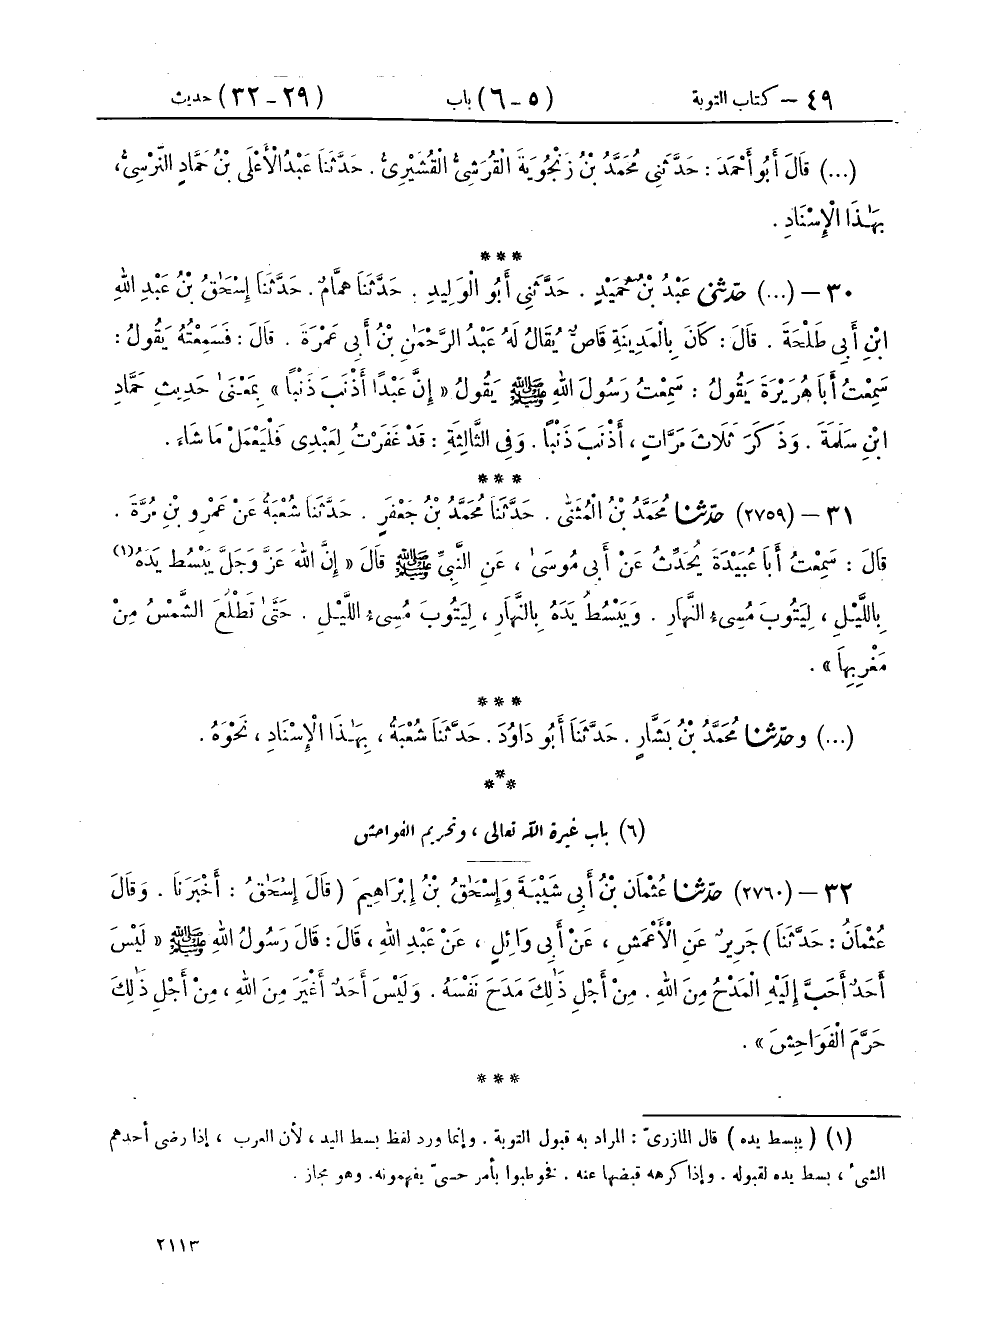 ٤٩ – كتاب التوبة (٥ – ٦) باب (٢٩ – ٣٢) حديث
(...) قَالَ أَبُو أَحْمَدَ : حَدَّثَنِي مُحَمَّدُ بْنُ زَنْجُويَةَ الْقُرَشِيُّ الْقُشَيْرِيُّ . حَدَّثَنَا عَبْدُ الْأَعْلَى بْنُ حَمَّادٍ النَّرْسِيُّ،
بِهَٰذَا الْإِسْنَادِ .
***
٣٠ – (...) حدّثنى عَبْدُ بْنُ حُمَيْدٍ . حَدَّثَنِي أَبُو الْوَلِيدِ . حَدَّثَنَا هَمَّامٌ . حَدَّثَنَا إِسْحَٰقُ بْنُ عَبْدِ اللهِ
ابْنِ أَبِي طَلْحَةَ . قَالَ : كَانَ بِالْمَدِينَةِ قَاصٌّ يُقَالُ لَهُ عَبْدُ الرَّحْمَٰنِ بْنُ أَبِي عَمْرَةَ . قَالَ : فَسَمِعْتُهُ يَقُولُ :
سَمِعْتُ أَبَا هُرَيْرَةَ يَقُولُ : سَمِعْتُ رَسُولَ اللهِ ﷺ يَقُولُ « إِنَّ عَبْدًا أَذْنَبَ ذَنْبًا » بِمَعْنَىٰ حَدِيثِ حَمَّادِ
ابْنِ سَلَمَةَ . وَذَكَرَ ثَلَاثَ مَرَّاتٍ ، أَذْنَبَ ذَنْبًا . وَفِي الثَّالِثَةِ : قَدْ غَفَرْتُ لِعَبْدِى فَلْيَعْمَلْ مَا شَاءَ .
***
٣١ – (٢٧٥٩) حدّثنا مُحَمَّدُ بْنُ الْمُثَنَّىٰ . حَدَّثَنَا مُحَمَّدُ بْنُ جَعْفَرٍ . حَدَّثَنَا شُعْبَةُ عَنْ عَمْرِو بْنِ مُرَّةَ .
قَالَ : سَمِعْتُ أَبَا عُبَيْدَةَ يُحَدِّثُ عَنْ أَبِي مُوسَىٰ ، عَنِ النَّبِيِّ ﷺ قَالَ « إِنَّ اللهَ عَزَّ وَجَلَّ يَبْسُطُ يَدَهُ(١)
بِاللَّيْلِ ، لِيَتُوبَ مُسِىءُ النَّهَارِ . وَيَبْسُطُ يَدَهُ بِالنَّهَارِ ، لِيَتُوبَ مُسِىءُ اللَّيْلِ . حَتَّىٰ تَطْلُعَ الشَّمْسُ مِنْ
مَغْرِبِهَا » .
***
(...) وحدّثنا مُحَمَّدُ بْنُ بَشَّارٍ . حَدَّثَنَا أَبُو دَاوُدَ . حَدَّثَنَا شُعْبَةُ ، بِهَٰذَا الْإِسْنَادِ ، نَحْوَهُ .
***
(٦) باب غيرة الله تعالى ، وتحريم الفواحش
٣٢ – (٢٧٦٠) حدّثنا عُثْمَانُ بْنُ أَبِي شَيْبَةَ وَإِسْحَٰقُ بْنُ إِبْرَاهِيمَ ( قَالَ إِسْحَٰقُ : أَخْبَرَنَا . وَقَالَ
عُثْمَانُ : حَدَّثَنَا ) جَرِيرٌ عَنِ الْأَعْمَشِ ، عَنْ أَبِي وَائِلٍ ، عَنْ عَبْدِ اللهِ ، قَالَ : قَالَ رَسُولُ اللهِ ﷺ « لَيْسَ
أَحَدٌ أَحَبَّ إِلَيْهِ الْمَدْحُ مِنَ اللهِ . مِنْ أَجْلِ ذَٰلِكَ مَدَحَ نَفْسَهُ . وَلَيْسَ أَحَدٌ أَغْيَرَ مِنَ اللهِ ، مِنْ أَجْلِ ذَٰلِكَ
حَرَّمَ الْفَوَاحِشَ » .
***
(١) ( يبسط يده ) قال المازريّ : المراد به قبول التوبة . وإنما ورد لفظ بسط اليد ، لأن العرب ، إذا رضى أحدهم
الشىء ، بسط يده لقبوله . وإذا كرهه قبضها عنه . فخوطبوا بأمر حسىّ يفهمونه . وهو مجاز .
٢١١٣